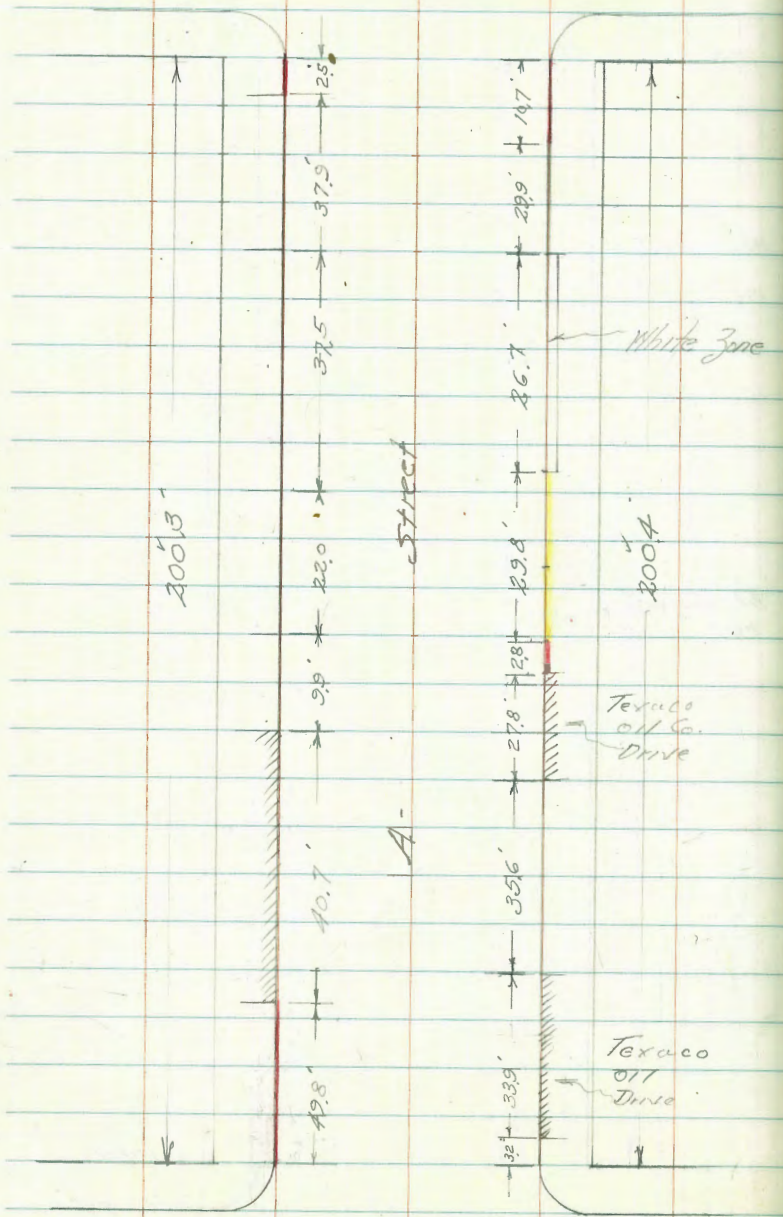 2.5'
37.9'
37.5
22.0
9.9'
40.7'
49.8'
200.3'
A- Street
10.7'
29.9'
26.7'
29.8'
2.8'
27.8'
35.6'
33.9'
3.2'
200.4'
White Zone
Texaco
Oil Co.
Drive
Texaco
Oil
Drive